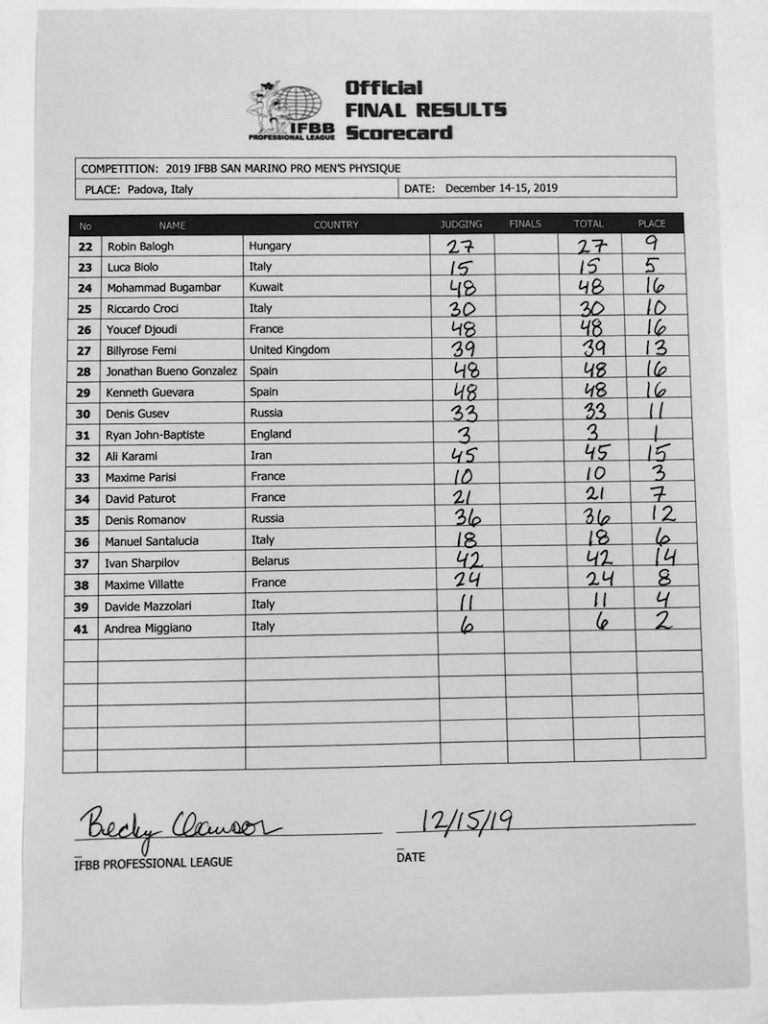 Official
FINAL RESULTS
Scorecard
IFBB
PROFESSIONAL LEAGUE
COMPETITION: 2019 IFBB SAN MARINO PRO MEN'S PHYSIQUE
PLACE: Padova, Italy DATE: December 14-15, 2019
No NAME COUNTRY JUDGING FINALS TOTAL PLACE
22 Robin Balogh Hungary 27 27 9
23 Luca Biolo Italy 15 15 5
24 Mohammad Bugambar Kuwait 48 48 16
25 Riccardo Croci Italy 30 30 10
26 Youcef Djoudi France 48 48 16
27 Billyrose Femi United Kingdom 39 39 13
28 Jonathan Bueno Gonzalez Spain 48 48 16
29 Kenneth Guevara Spain 48 48 16
30 Denis Gusev Russia 33 33 11
31 Ryan John-Baptiste England 3 3 1
32 Ali Karami Iran 45 45 15
33 Maxime Parisi France 10 10 3
34 David Paturot France 21 21 7
35 Denis Romanov Russia 36 36 12
36 Manuel Santalucia Italy 18 18 6
37 Ivan Sharpilov Belarus 42 42 14
38 Maxime Villatte France 24 24 8
39 Davide Mazzolari Italy 11 11 4
41 Andrea Miggiano Italy 6 6 2
Becky Clawson 12/15/19
IFBB PROFESSIONAL LEAGUE DATE